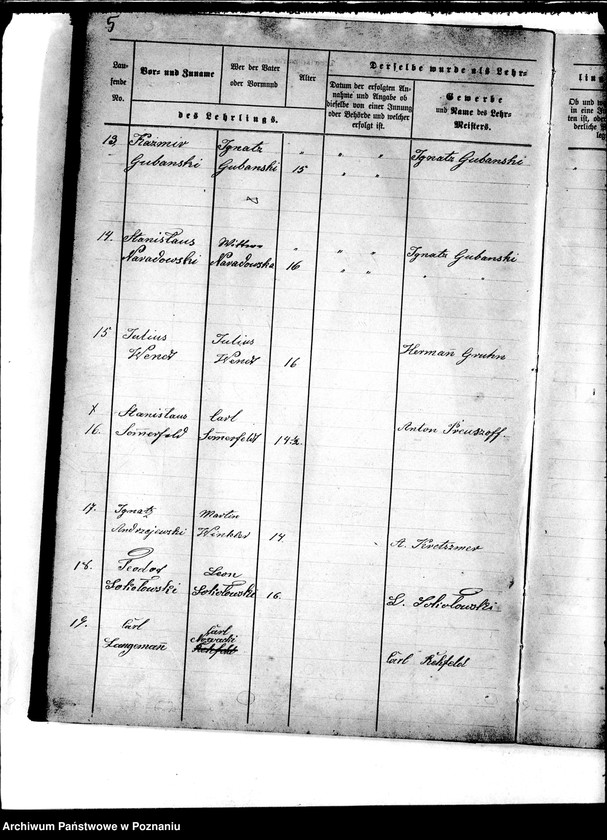 5
Lau-
fende
No.
Vor- und Zuname
Wer der Vater
oder Vormund
Alter
des Lehrlings.
Derselbe wurde als Lehr-
Datum der erfolgten An-
nahme und Angabe ob
dieselbe von einer Innung
oder Behörde und welcher
erfolgt ist.
Gewerbe
und Name des Lehr-
Meisters.
ling
Ob und w
in eine J
ten ist, ode
derliche
leg
13 Kazmir Ignatz " " "
Gubanski Gubanski 15 " " Ignatz Gubanski
14. Stanislaus Wittwe " " "
Navadowski Navadowska 16 " " Ignatz Gubanski
" "
15 Julius Julius
Wendt Wendt 16 Hermann Gruhn
X Stanislaus Carl
16. Somerfeld Somerfeldt 14½ Anton Preussoff
17. Ignatz Martin
Andrzejewski Winkler 14 A. Kretzmer
18. Teodor Leon
Sokolowski Sokolowski 16 L. Sokolowski
19. Carl Carl
Langemañ Nowacki
Rehfeld
Carl Rehfeld
Archiwum Państwowe w Poznaniu